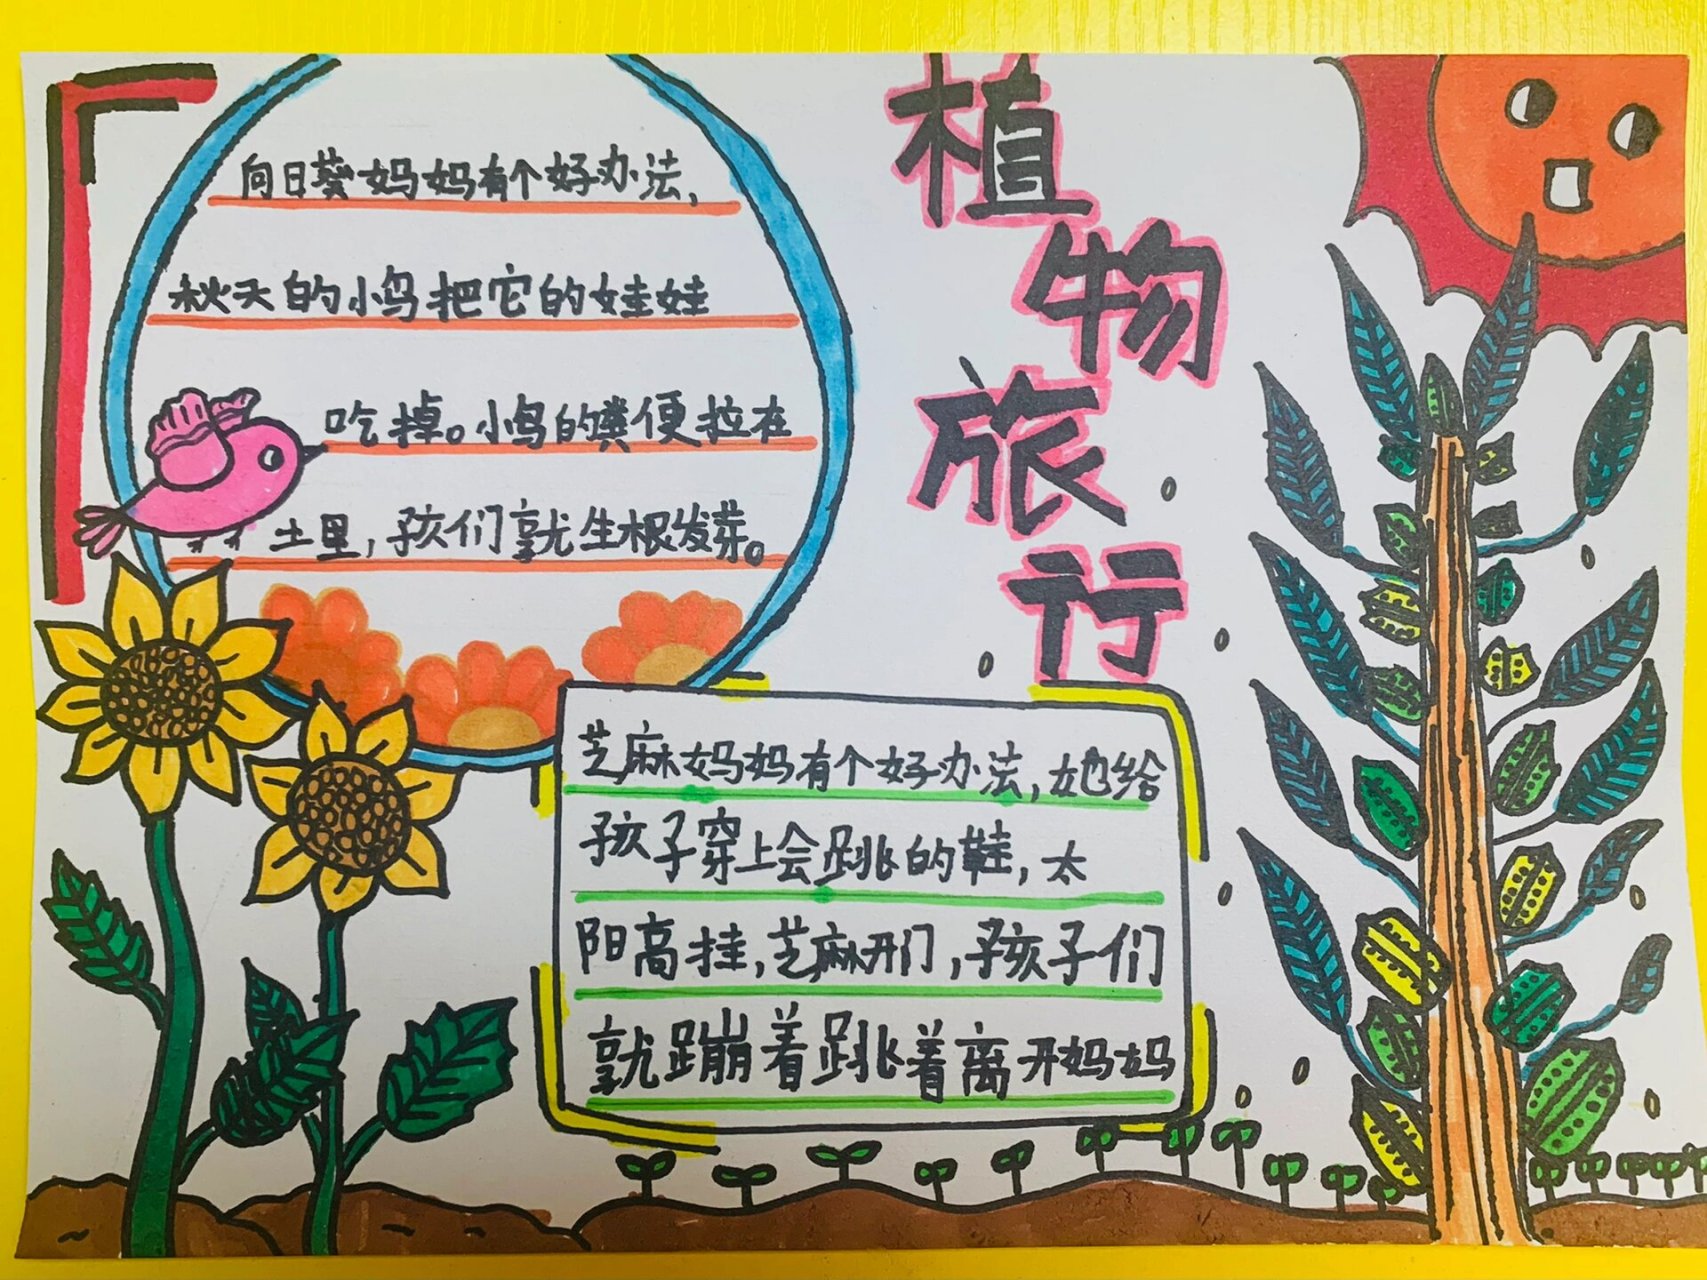 植物旅行
向日葵妈妈有个好办法，
秋天的小鸟把它的娃娃
吃掉。小鸟的粪便拉在
土里，孩们就生根发芽。
芝麻妈妈有个好办法，她给
孩子穿上会跳的鞋，太
阳高挂，芝麻开门，孩子们
就蹦着跳着离开妈妈